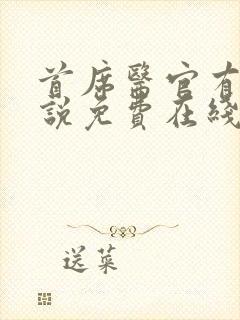 首席醫官有
說免費在綫
送菜